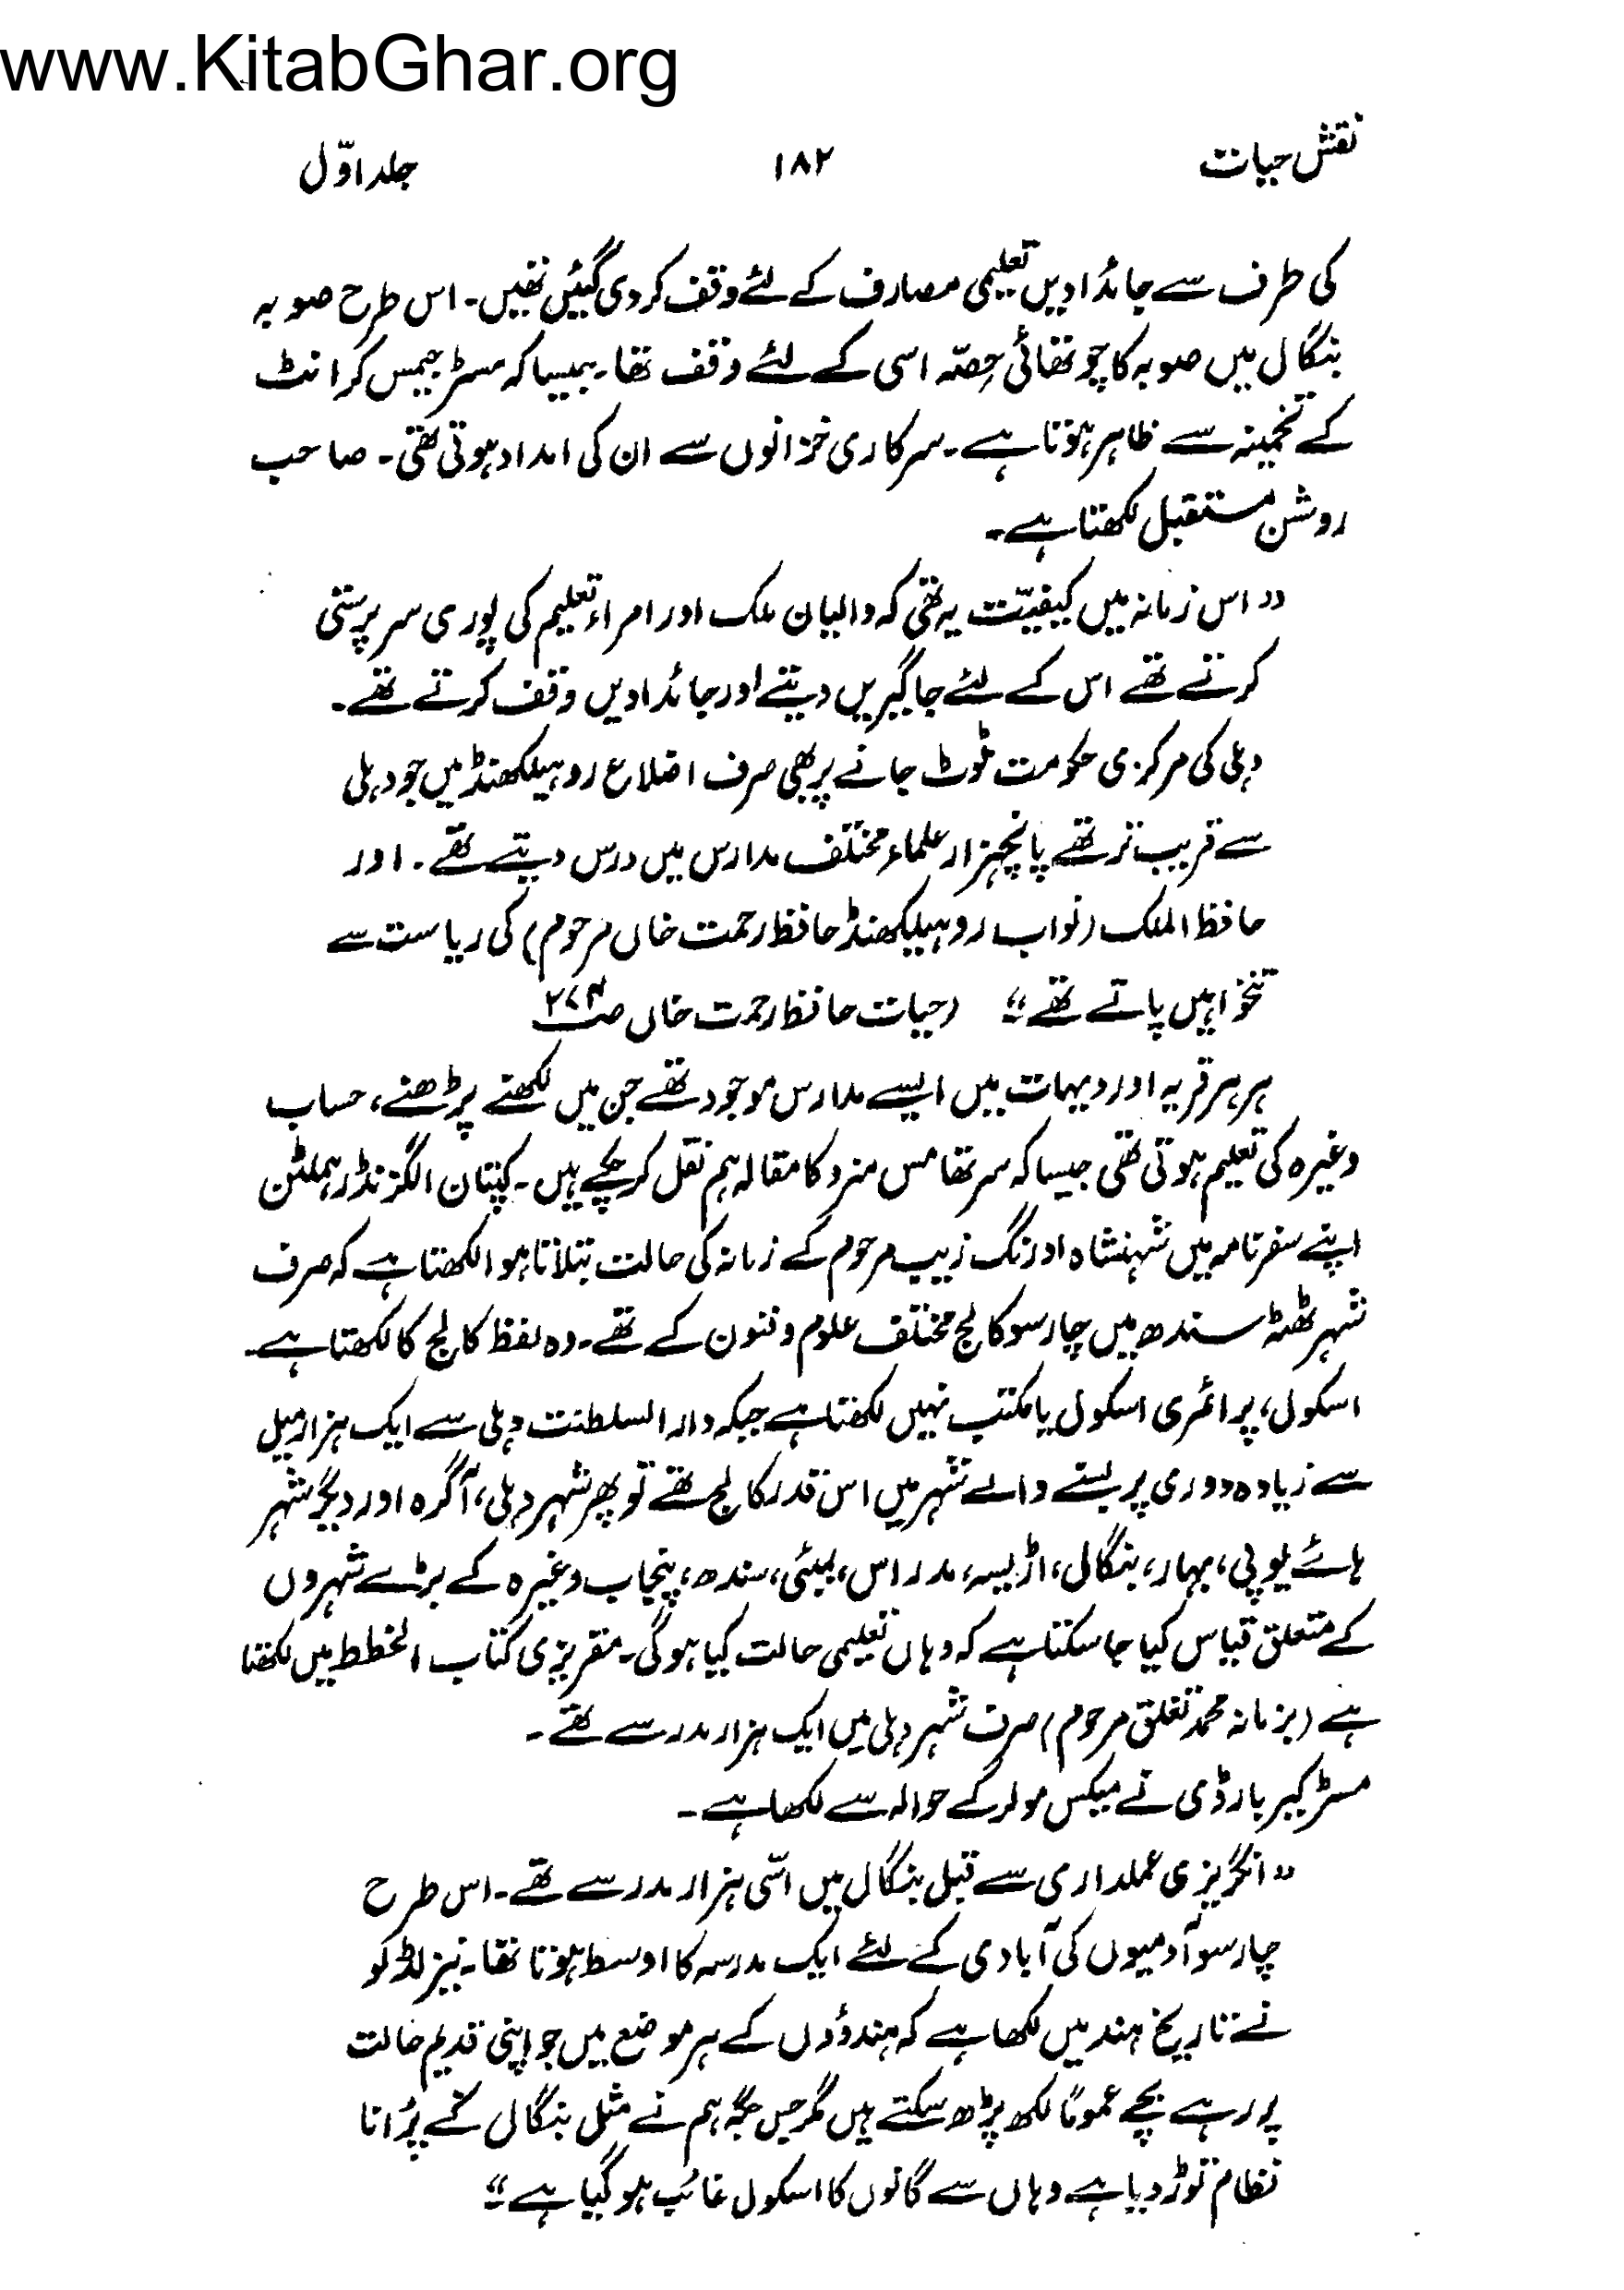 www.KitabGhar.org
نقش حیات ۱۸۲ جلد اوّل
کی طرف سے جائدادیں تعلیمی مصارف کے لئے وقف کر دی گئیں تھیں۔ اس طرح صوبہ
بنگال میں صوبہ کا چوتھائی حِصّہ اسی کے لئے وقف تھا۔ جیسا کہ مسٹر جیمس گرانٹ
کے تخمینہ سے ظاہر ہوتا ہے۔ سرکاری خزانوں سے ان کی امداد ہوتی تھی۔ صاحب
روشن مستقبل لکھتا ہے۔
"اس زمانہ میں کیفیّت یہ تھی کہ والیان ملک اور امراء تعلیم کی پوری سرپرستی
کرتے تھے اس کے لئے جاگیریں دیتے اور جائدادیں وقف کرتے تھے۔
دہلی کی مرکزی حکومت ٹوٹ جانے پر بھی صرف اضلاع روہیلکھنڈ میں جو دہلی
سے قریب تر تھے پانچہزار علماء مختلف مدارس میں درس دیتے تھے۔ اور
حافظ الملک (نواب روہیلکھنڈ حافظ رحمت خاں مرحوم) کی ریاست سے
تنخواہیں پاتے تھے" (حیات حافظ رحمت خاں صـ۲۷۴
ہر ہر قریہ اور دیہات میں ایسے مدارس موجود تھے جن میں لکھنے پڑھنے، حساب
وغیرہ کی تعلیم ہوتی تھی جیسا کہ سر تھامس منرو کا مقالہ ہم نقل کر چکے ہیں۔ کپتان الگزنڈر ہملٹن
اپنے سفرنامہ میں شہنشاہ اورنگ زیب مرحوم کے زمانہ کی حالت بتلاتا ہوا لکھتا ہے کہ صرف
شہر ٹھٹہ سندھ میں چار سو کالج مختلف علوم و فنون کے تھے۔ وہ لفظ کالج کا لکھتا ہے۔
اسکول، پرائمری اسکول یا مکتب نہیں لکھتا ہے جبکہ دارالسلطنت دہلی سے ایک ہزار میل
سے زیادہ دوری پر بسنے والے شہر میں اس قدر کالج تھے تو پھر شہر دہلی، آگرہ اور دیگر شہر
ہائے یوپی، بہار، بنگالی، اڑیسہ، مدراس، بمبئی، سندھ، پنجاب وغیرہ کے بڑے شہروں
کے متعلق قیاس کیا جا سکتا ہے کہ وہاں تعلیمی حالت کیا ہوگی۔ مقریزی کتاب الخطط میں لکھتا
ہے (بزمانہ محمد تغلق مرحوم) صرف شہر دہلی میں ایک ہزار مدرسے تھے۔
مسٹر کیر ہارڈی نے میکس مولر کے حوالہ سے لکھا ہے۔
"انگریزی عملداری سے قبل بنگال میں اسّی ہزار مدرسے تھے۔ اس طرح
چار سو آدمیوں کی آبادی کے لئے ایک مدرسہ کا اوسط ہوتا تھا۔ نیز لڈلو
نے تاریخ ہند میں لکھا ہے کہ ہندوؤں کے ہر موضع میں جو اپنی قدیم حالت
پر رہے بچے عموماً لکھ پڑھ سکتے ہیں مگر جس جگہ ہم نے مثل بنگالی کے پُرانا
نظام توڑ دیا ہے وہاں سے گانوں کا اسکول غائب ہو گیا ہے"